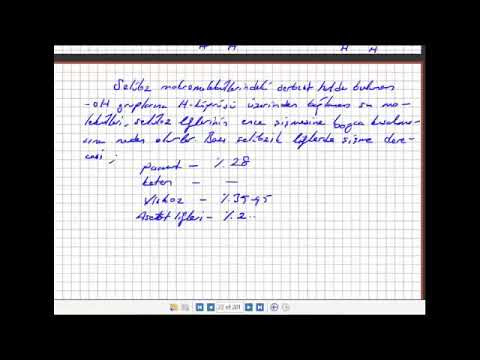 H H H H
Seliloz makromolekullerindeki serbest halde bulunan
-OH gruplarına H-köprüsü üzerinden bağlanan su mo-
lekülleri, seliloz liflerinin ence şişmesine boyca kısalma-
sına neden olurlar Bazı selilozik liflerde şişme dere-
cesi ;
pamuk - % 28
keten - —
Viskoz - % 35-45
Asetat lifleri - % 2..
22 of 201